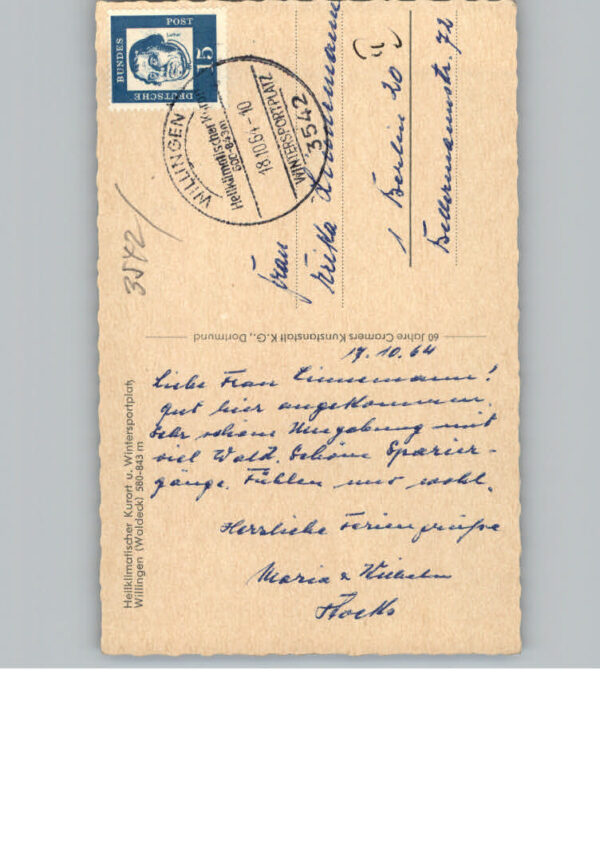 DEUTSCHE
BUNDES
POST
15
Luther
WILLINGEN
Heilklimatischer Kurort
600-843m
18.10.64-10
WINTERSPORTPLATZ
3542
3542/
Frau
Erika Linnemann
1 Berlin 20
Bellermannstr. 72
60 Jahre Cramers Kunstanstalt K.G., Dortmund
Heilklimatischer Kurort u. Wintersportplatz
Willingen (Waldeck) 580-843 m
17.10.64
Liebe Frau Linnemann!
Gut hier angekommen.
Sehr schöne Umgebung mit
viel Wald. Schöne Spazier-
gänge. Fühlen uns wohl.
Herzliche Feriengrüße
Maria & Wilhelm